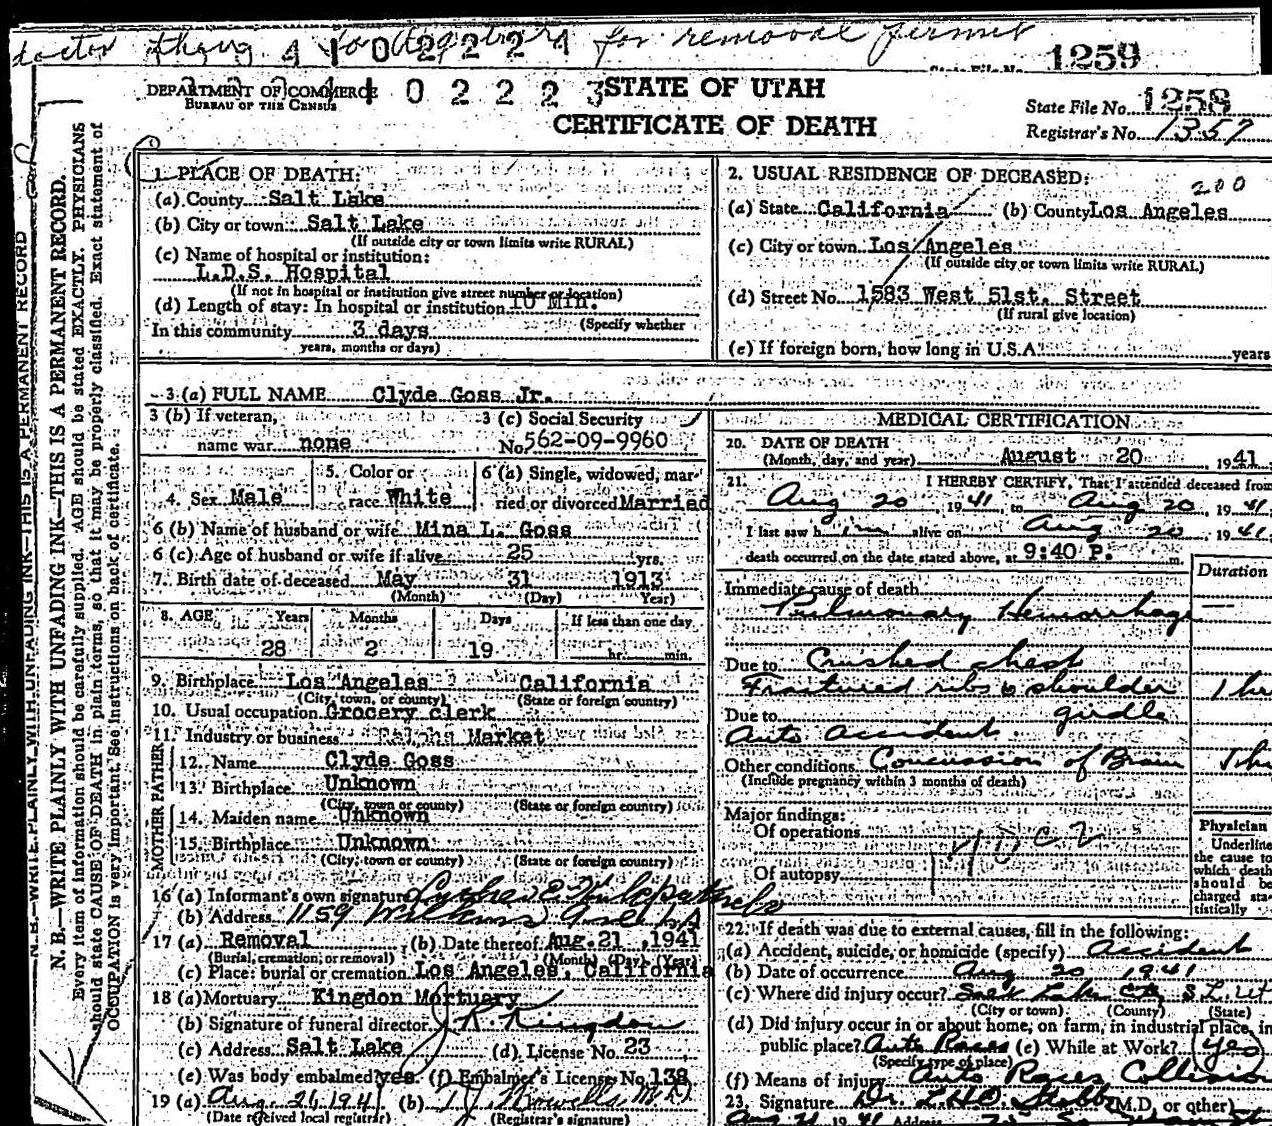 doctor for removal permit
4 1 0 2 2 2 4
State File No. 1259
DEPARTMENT OF COMMERCE
BUREAU OF THE CENSUS
4 1 0 2 2 2 3
STATE OF UTAH
CERTIFICATE OF DEATH
State File No. 1258
Registrar's No. 1357
N. B.—WRITE PLAINLY WITH UNFADING INK—THIS IS A PERMANENT RECORD
N. B.—WRITE PLAINLY WITH UNFADING INK—THIS IS A PERMANENT RECORD.
Every item of information should be carefully supplied. AGE should be stated EXACTLY. PHYSICIANS
should state CAUSE OF DEATH in plain terms, so that it may be properly classified. Exact statement of
OCCUPATION is very important. See instructions on back of certificate.
1. PLACE OF DEATH:
(a) County Salt Lake
(b) City or town Salt Lake
(If outside city or town limits write RURAL)
(c) Name of hospital or institution:
L.D.S. Hospital
(If not in hospital or institution give street number or location)
(d) Length of stay: In hospital or institution 10 Min.
(Specify whether
In this community 3 days
years, months or days)
2. USUAL RESIDENCE OF DECEASED:
200
(a) State California (b) County Los Angeles
(c) City or town Los Angeles
(If outside city or town limits write RURAL)
(d) Street No. 1583 West 51st. Street
(If rural give location)
(e) If foreign born, how long in U.S.A. years
3 (a) FULL NAME Clyde Goss Jr.
3 (b) If veteran,
name war none
3 (c) Social Security
No. 562-09-9960
4. Sex Male
5. Color or
race White
6 (a) Single, widowed, mar-
ried or divorced Married
6 (b) Name of husband or wife Mina L. Goss
6 (c) Age of husband or wife if alive 25 yrs.
7. Birth date of deceased May 31 1913
(Month) (Day) Year)
8. AGE Years Months Days If less than one day
28 2 19 hr. min.
9. Birthplace Los Angeles California
(City, town, or county) (State or foreign country)
10. Usual occupation Grocery clerk
11. Industry or business Ralphs Market
FATHER
12. Name Clyde Goss
13. Birthplace Unknown
(City, town or county) (State or foreign country)
MOTHER
14. Maiden name Unknown
15. Birthplace Unknown
(City, town or county) (State or foreign country)
16 (a) Informant's own signature
(b) Address 1159
17 (a) Removal (b) Date thereof Aug. 21, 1941
(Burial, cremation, or removal) (Month) (Day) (Year)
(c) Place: burial or cremation Los Angeles, California
18 (a) Mortuary Kingdon Mortuary
(b) Signature of funeral director J. R. Kingdon
(c) Address Salt Lake (d) License No. 23
(e) Was body embalmed yes (f) Embalmer's License No. 138
19 (a) Aug. 21, 1941 (b)
(Date received local registrar) (Registrar's signature)
MEDICAL CERTIFICATION
20. DATE OF DEATH
(Month, day, and year) August 20, 1941
21. I HEREBY CERTIFY, That I attended deceased from
Aug 20, 1941, to Aug 20, 1941.
I last saw h im alive on Aug 20, 1941.
death occurred on the date stated above, at 9:40 P. m.
Duration
Immediate cause of death
Pulmonary Hemorrhage
Due to Crushed chest
Fractured ribs & shoulder
Due to girdle
Auto Accident.
Other conditions Concussion of Brain
(Include pregnancy within 3 months of death)
Major findings:
Of operations
Of autopsy
Physician
Underline
the cause to
which death
should be
charged sta-
tistically
22. If death was due to external causes, fill in the following:
(a) Accident, suicide, or homicide (specify) Accident
(b) Date of occurrence Aug 20 1941
(c) Where did injury occur? Salt Lake City S.L. Ut
(City or town) (County) (State)
(d) Did injury occur in or about home, on farm, in industrial place, in
public place? Auto Races (e) While at Work? yes
(Specify type of place)
(f) Means of injury Auto Races Collision
23. Signature Dr. (M.D. or other)
Aug 21 1941 Address